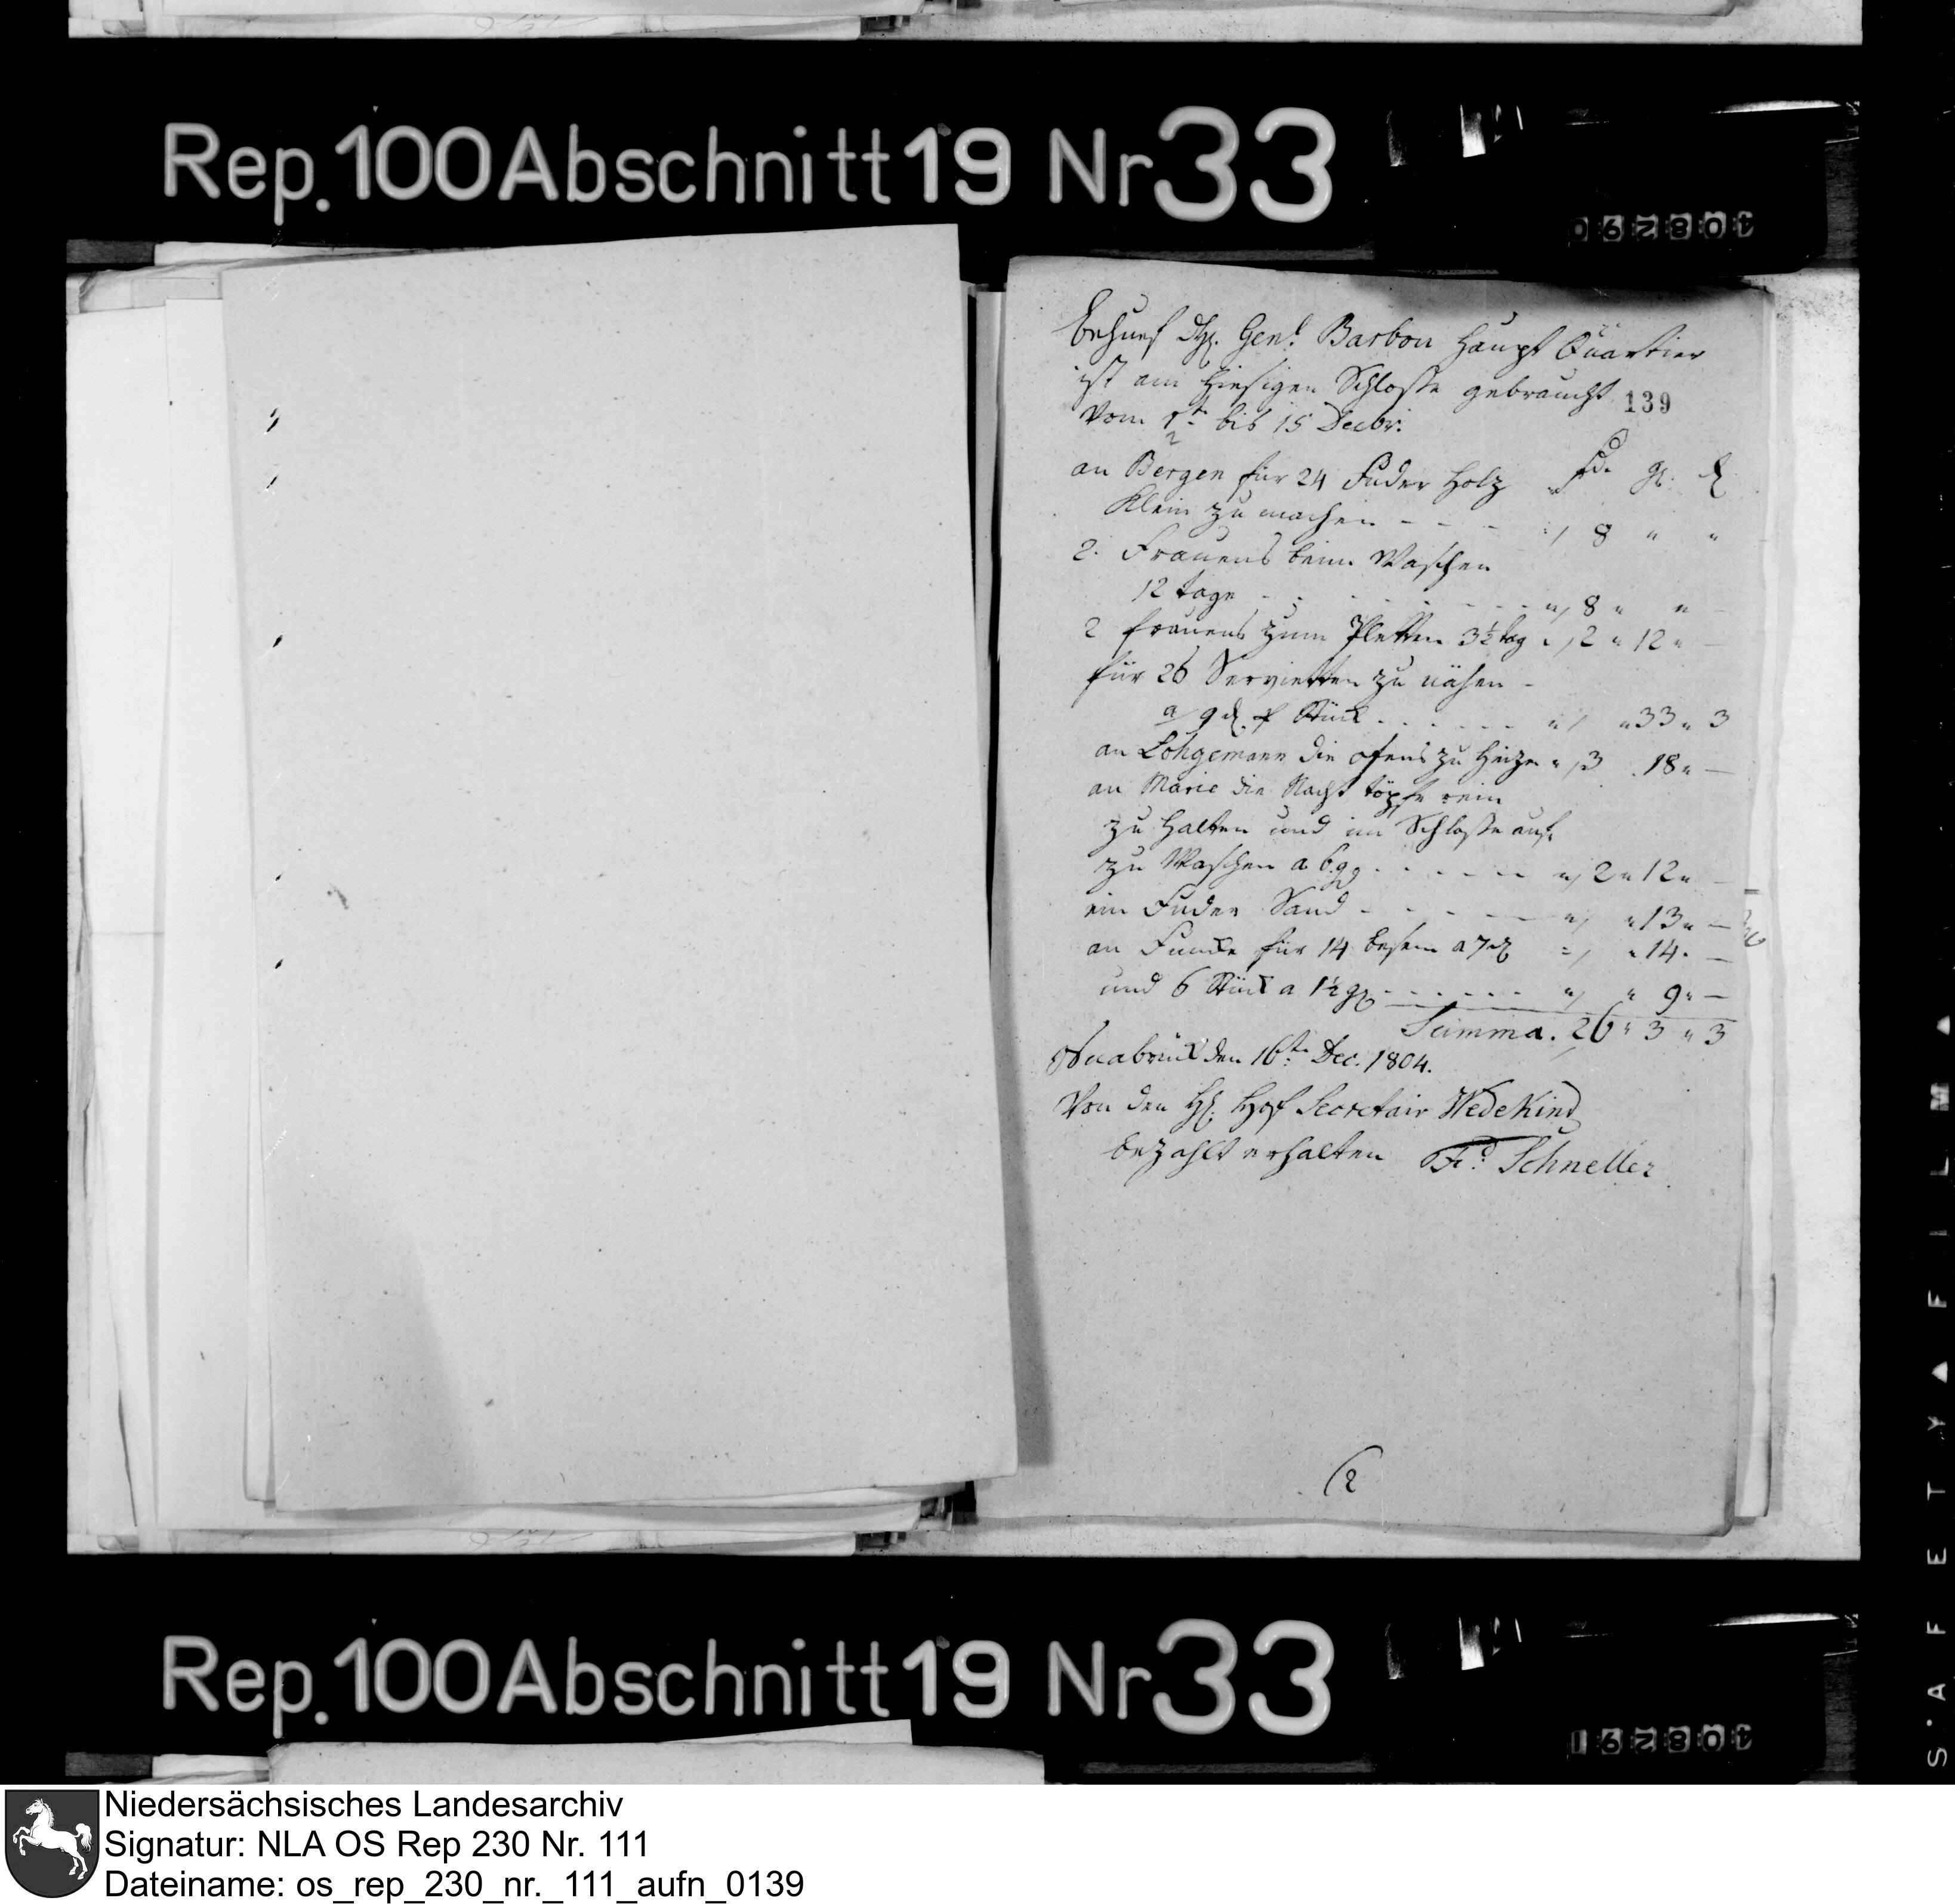 Rep. 100 Abschnitt 19 Nr 33
139
Behuef Hℓ. Genl. Barbou Haupt Quartier
ist am hiesigen Schlosse gebraucht
Vom 1ten bis 15 Decbr:
2
an Bergen für 24 Fuder Holz gl. ₰
Klein zu machen - - - - 8 " "
2. Frauens beim Waschen
12 tage - - - - - - - 8 " " -
2 frauens zum Pletten 3½ tag " 2 " 12 " -
für 26 Servietten zu nähen -
a 9 ₰. p Stück - - - - - " " 33 " 3
an Lohgemann die ofens zu heizen " 3 . 18 " -
an Marie die Nacht töpfe rein
zu halten und im Schlosse auf
zu Waschen a 6 gg - - - - - " 2 " 12 " -
ein Fuder Sand - - - - - " " 13 " -
an Funcke für 14 besem a 7 ₰ = " 14 . -
und 6 Stück a 1½ gg - - - - - " " 9 " -
Summa. 26 " 3 " 3
Osnabrück den 16ten Dec. 1804.
Von den Hℓ. Hof Secretair Wedekind
bezahlt erhalten Fr. Schneller
2
Rep. 100 Abschnitt 19 Nr 33
SAFETY ▲ FILM ▲
Niedersächsisches Landesarchiv
Signatur: NLA OS Rep 230 Nr. 111
Dateiname: os_rep_230_nr._111_aufn_0139